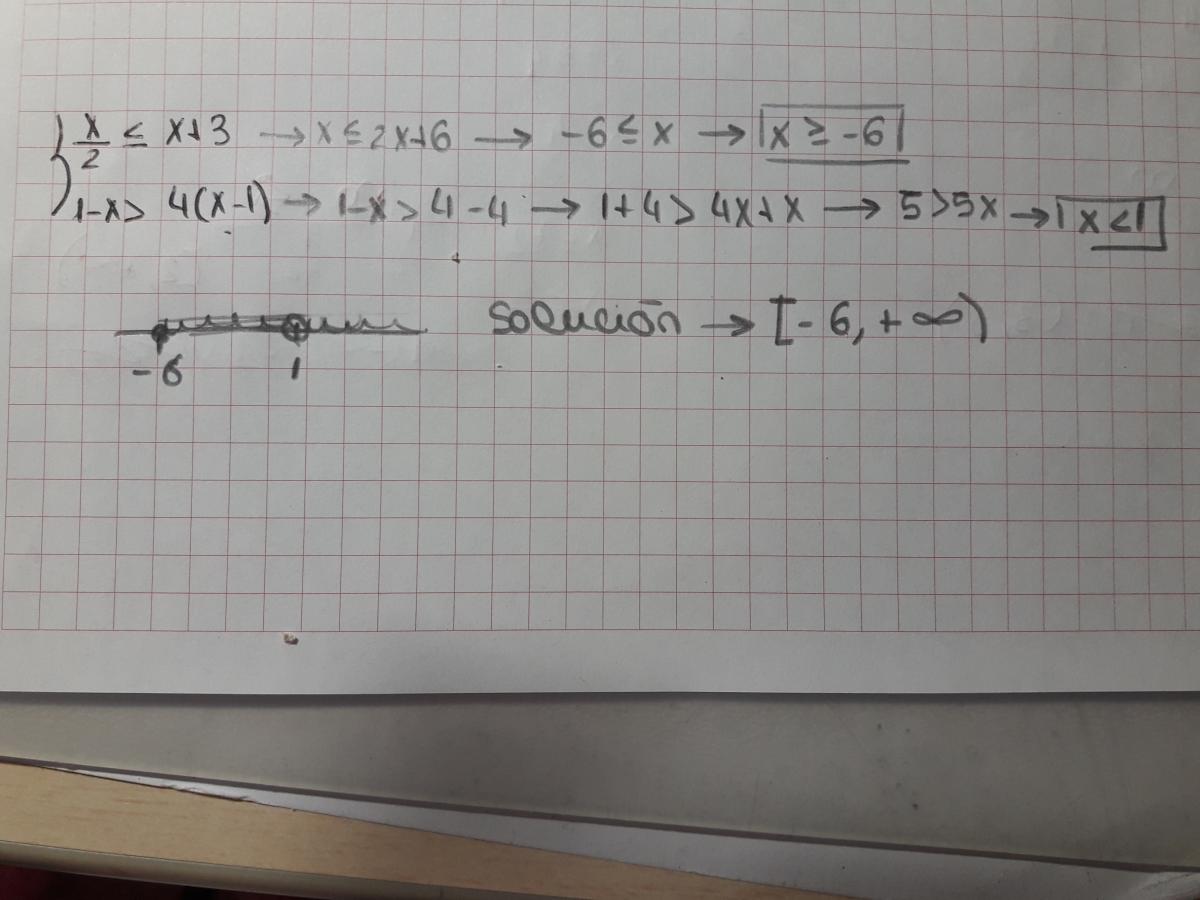 x/2 ≤ x+3 → x ≤ 2x+6 → -6 ≤ x → x ≥ -6
1-x > 4(x-1) → 1-x > 4-4 → 1+4 > 4x+x → 5 > 5x → x < 1
-6 1 Solución → [-6, +∞)